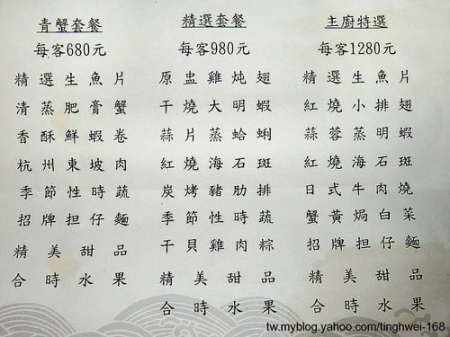 青蟹套餐
每客680元
精選生魚片
清蒸肥膏蟹
香酥鮮蝦卷
杭州東坡肉
季節性時蔬
招牌担仔麵
精美甜品
合時水果
精選套餐
每客980元
原盅雞炖翅
干燒大明蝦
蒜片蒸蛤蜊
紅燒海石斑
炭烤豬肋排
季節性時蔬
干貝雞肉粽
精美甜品
合時水果
主廚特選
每客1280元
精選生魚片
紅燒小排翅
蒜蓉蒸明蝦
紅燒海石斑
日式牛肉燒
蟹黃焗白菜
招牌担仔麵
精美甜品
合時水果
tw.myblog.yahoo.com/tinghwei-168